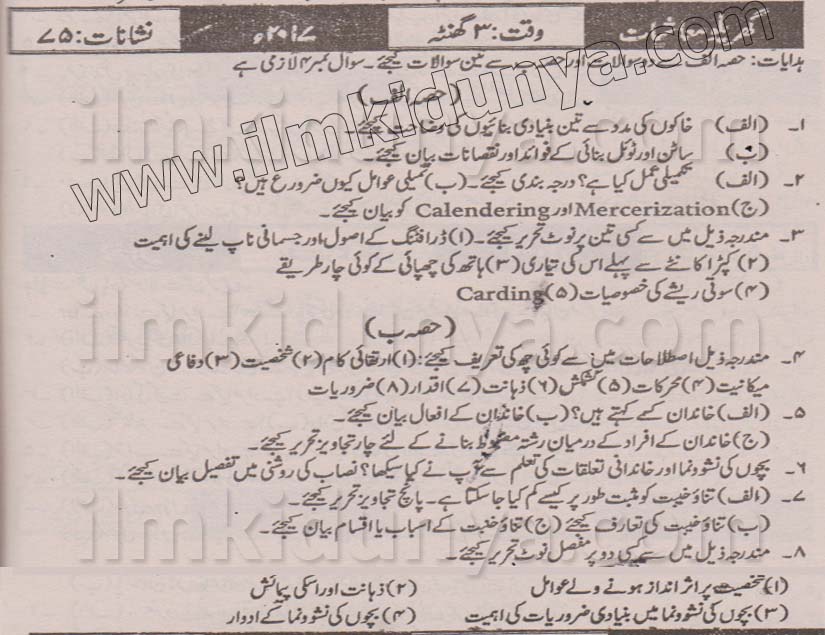 وقت: ۳ گھنٹہ ۲۰۱۷ء نشانات: ۷۵
ہدایات: حصہ الف سے دو سوالات اور حصہ ب سے تین سوالات کیجئے۔ سوال نمبر ۴ لازمی ہے
(حصہ الف)
۱۔ (الف) خاکوں کی مدد سے تین بنیادی بنائیوں کی وضاحت کیجئے۔
(ب) ساٹن اور ٹوئل بنائی کے فوائد اور نقصانات بیان کیجئے۔
۲۔ (الف) تکمیلی عمل کیا ہے؟ درجہ بندی کیجئے۔ (ب) تکمیلی عوامل کیوں ضرورع ہیں؟
(ج) Mercerization اور Calendering کو بیان کیجئے۔
۳۔ مندرجہ ذیل میں سے کسی تین پر نوٹ تحریر کیجئے۔ (۱) ڈرافٹنگ کے اصول اور جسمانی ناپ لینے کی اہمیت
(۲) کپڑا کاٹنے سے پہلے اس کی تیاری (۳) ہاتھ کی چھپائی کے کوئی چار طریقے
(۴) سوتی ریشے کی خصوصیات (۵) Carding
(حصہ ب)
۴۔ مندرجہ ذیل اصطلاحات میں سے کوئی چھ کی تعریف کیجئے: (۱) ارتقائی کام (۲) شخصیت (۳) دفاعی
میکانیت (۴) محرکات (۵) کشمکش (۶) ذہانت (۷) اقدار (۸) ضروریات
۵۔ (الف) خاندان کسے کہتے ہیں؟ (ب) خاندان کے افعال بیان کیجئے۔
(ج) خاندان کے افراد کے درمیان رشتہ مضبوط بنانے کے لئے چار تجاویز تحریر کیجئے۔
۶۔ بچوں کی نشوونما اور خاندانی تعلقات کی تعلم سے آپ نے کیا سیکھا؟ نصاب کی روشنی میں تفصیل بیان کیجئے۔
۷۔ (الف) تناؤ خبت کو مثبت طور پر کیسے کم کیا جا سکتا ہے۔ پانچ تجاویز تحریر کیجئے۔
(ب) تناؤ خبت کی تعارف کیجئے (ج) تناؤ خبت کے اسباب یا اقسام بیان کیجئے۔
۸۔ مندرجہ ذیل میں سے کسی دو پر مفصل نوٹ تحریر کیجئے۔
(۱) شخصیت پر اثر انداز ہونے ولے عوامل (۲) ذہانت اور اسکی پیمائش
(۳) بچوں کی نشوونما میں بنیادی ضروریات کی اہمیت (۴) بچوں کی نشوونما کے ادوار
www.ilmkidunya.com
ilmkidunya.com
ilmkidunya.com
ilmkidunya.com